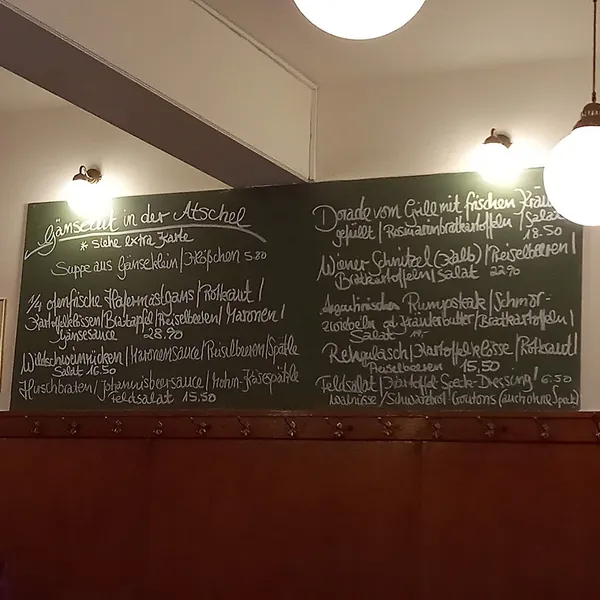 Gänsezeit in der Atschel
* siehe extra Karte
Suppe aus Gänseklein / Klößchen 5.80
1/4 ofenfrische Hafermastgans / Rotkraut /
Kartoffelklössen / Bratapfel / Preiselbeeren / Maronen /
Gänsesauce / 28.90
Wildschweinrücken / Maronensauce / Preiselbeeren / Spätzle
Salat 16.50
Hirschbraten / Johannisbeersauce / Mohn-Käsespätzle
Feldsalat 15.50
Dorade vom Grill mit frischen Kräut
gefüllt / Rosmarinbratkartoffeln / Salat
18.50
Wiener Schnitzel (Kalb) / Preiselbeeren /
Bratkartoffeln / Salat 22.90
Argentinisches Rumpsteak / Schmor-
zwiebeln od. Kräuterbutter / Bratkartoffeln /
Salat
Rehgulasch / Kartoffelklösse / Rotkraut /
Preiselbeeren 15,50
Feldsalat / Kartoffel Speck-Dressing / 6.50
Walnüsse / Schwarzbrot Croutons (auch ohne Speck)